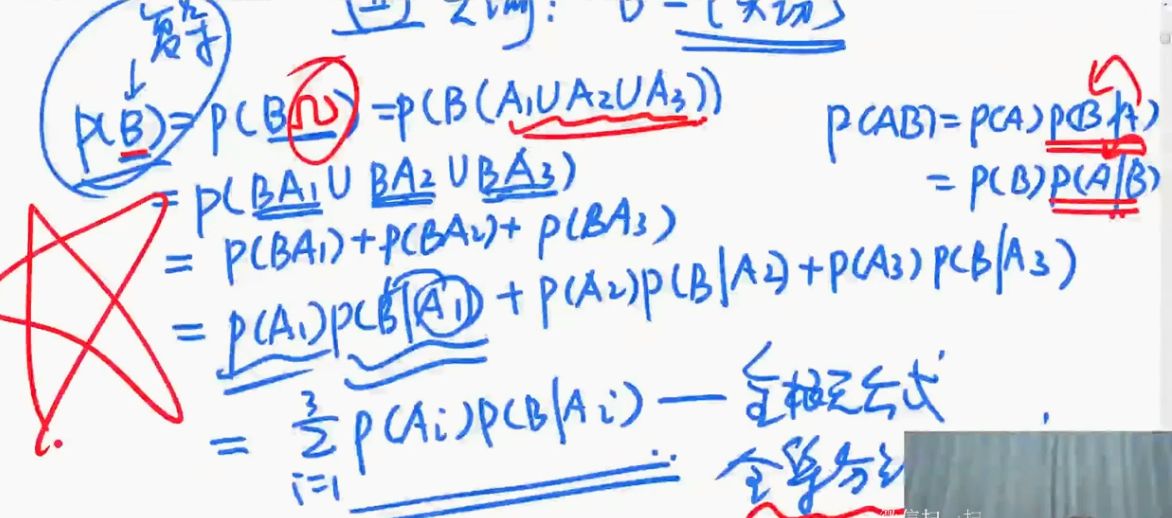 复杂
P(B)=P(BΩ)=P(B(A₁∪A₂∪A₃))
=P(BA₁∪BA₂∪BA₃)
=P(BA₁)+P(BA₂)+P(BA₃)
=P(A₁)P(B|A₁)+P(A₂)P(B|A₂)+P(A₃)P(B|A₃)
=∑_{i=1}^{3}P(Ai)P(B|Ai)—全概元公式
P(AB)=P(A)P(B|A)
=P(B)P(A|B)